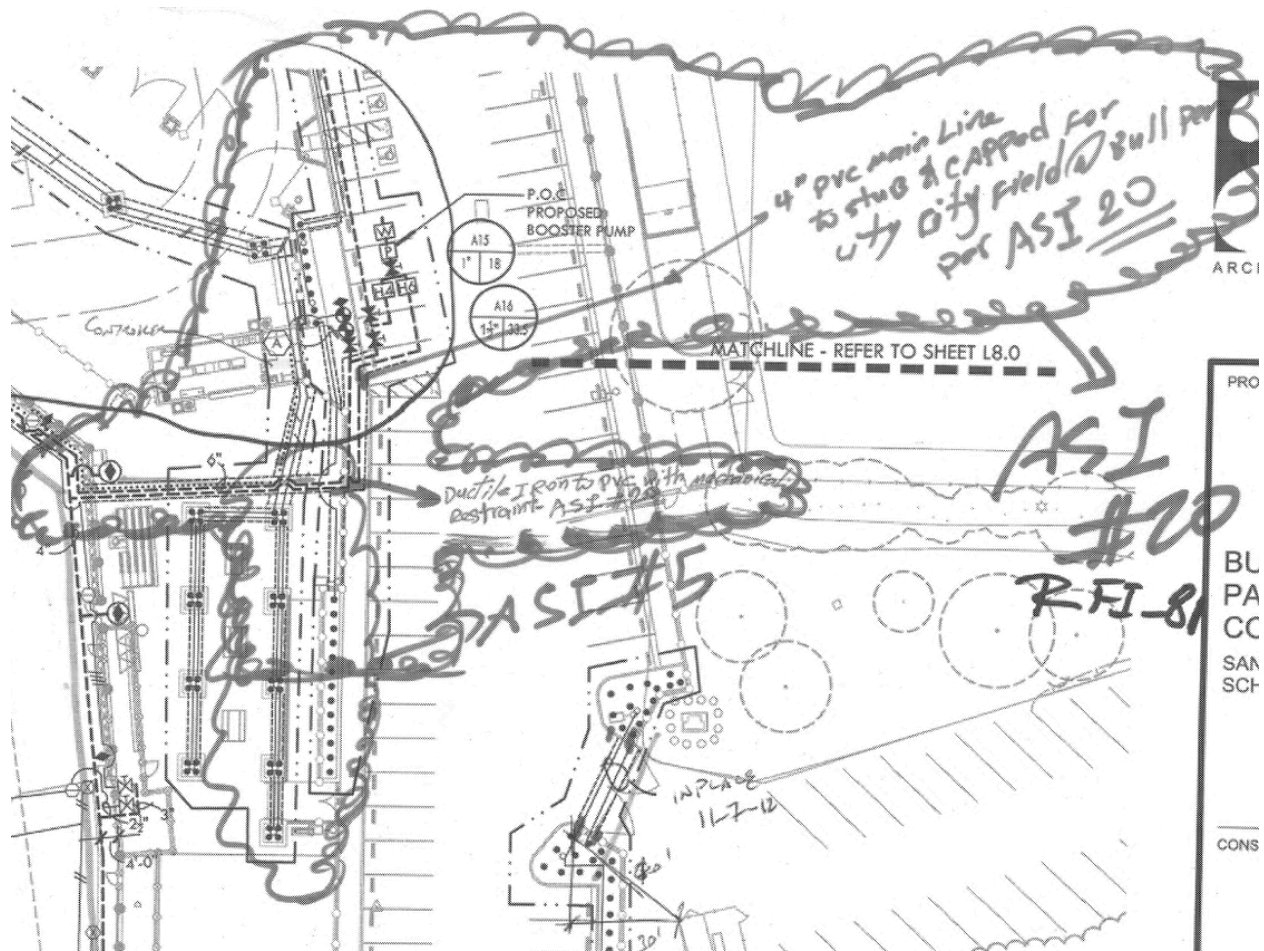 4" PVC main Line
to stub & CAPPED For
City Field @ Bull Pen
per ASI 20
ARCI
P.O.C.
PROPOSED
BOOSTER PUMP
A15
1" 18
A16
1½" 33.5
W
P
H4 H6
CONTROLLER
A
MATCHLINE - REFER TO SHEET L8.0
PRO
ASI
#20
RFI-81
6"
Ductile Iron to PVC with mechanical
Restraint ASI
ASI #5
4"
BU
PA
CO
SAN
SCH
IN PLACE
11-7-12
3"
2½"
4'-0"
CONS
30'